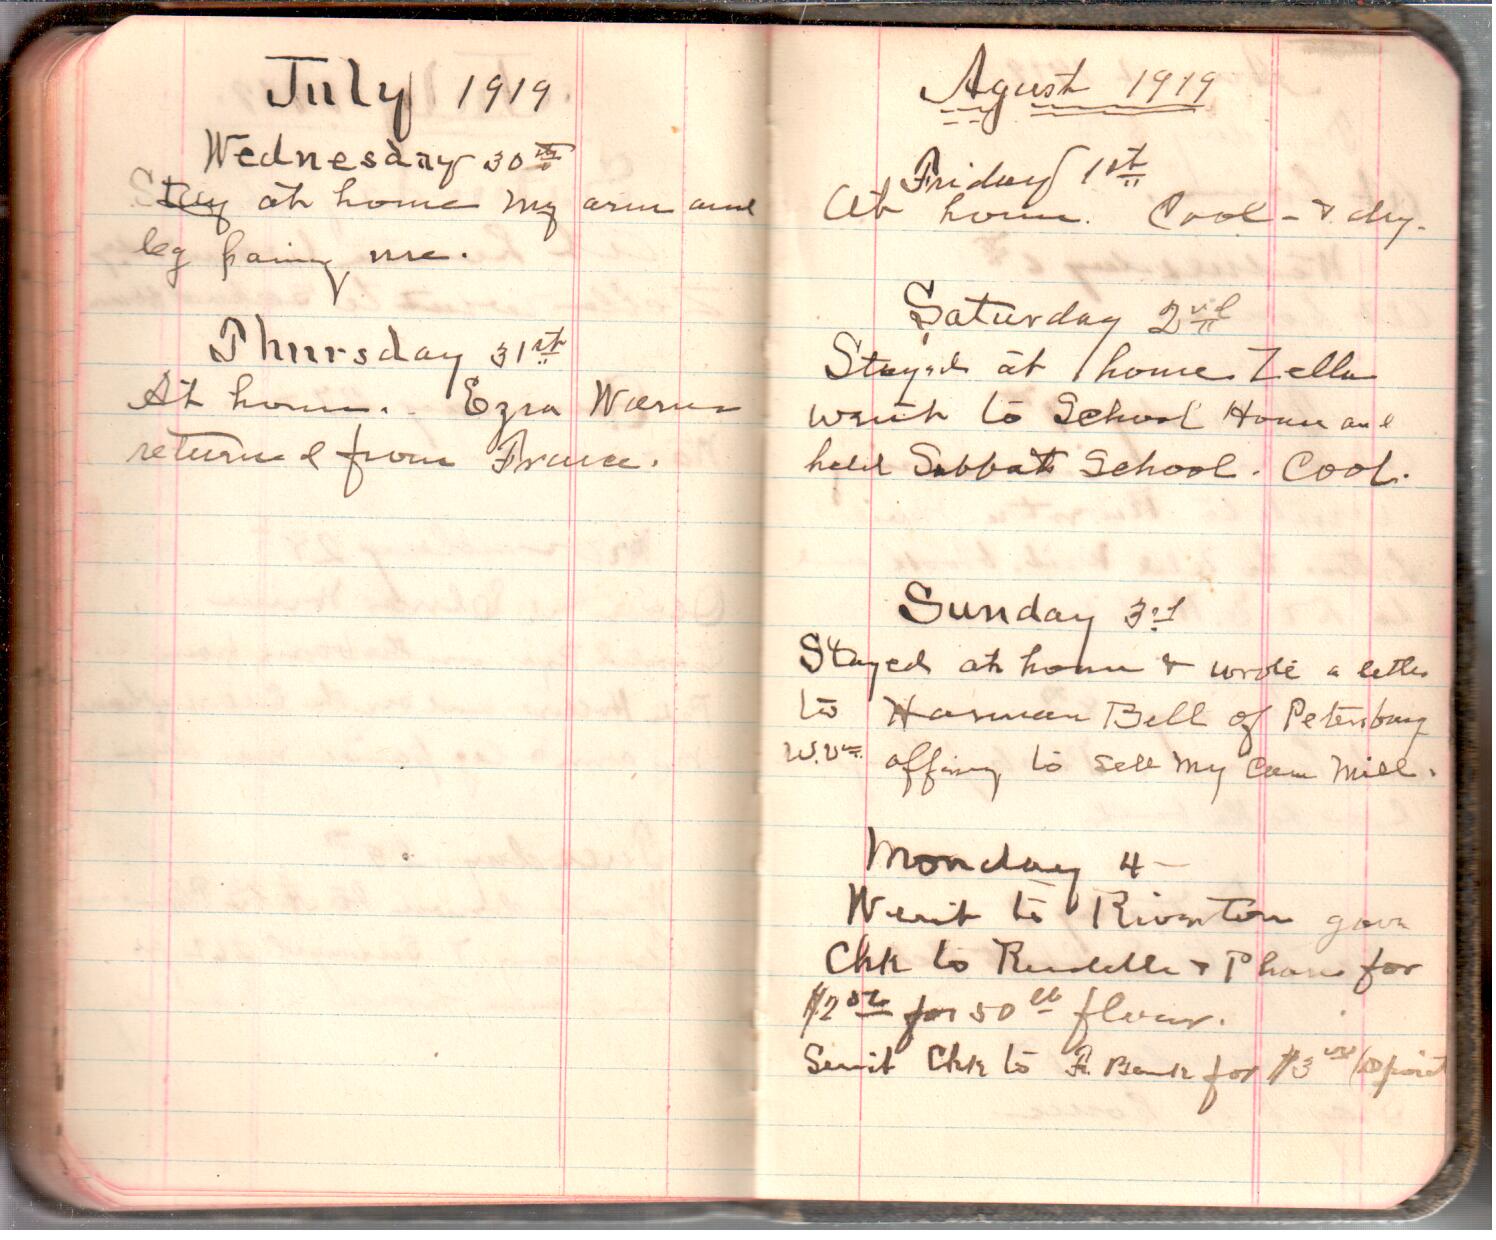 July 1919
Wednesday 30th
Stay at home my arm and
leg paining me.
Thursday 31st
At home. Ezra Warner
returned from France.
Agust 1919
Friday 1st
At home. Cool - & dry.
Saturday 2nd
Stayed at home Zella
went to School House and
held Sabbath School. Cool.
Sunday 3rd
Stayed at home & wrote a letter
to Harman Bell of Petersburg
W.Va. offering to sell my Cane Mill.
Monday 4
Went to Riverton gave
Chk to & for
for 50 lb flour.
Sent Chk to F. Bank for